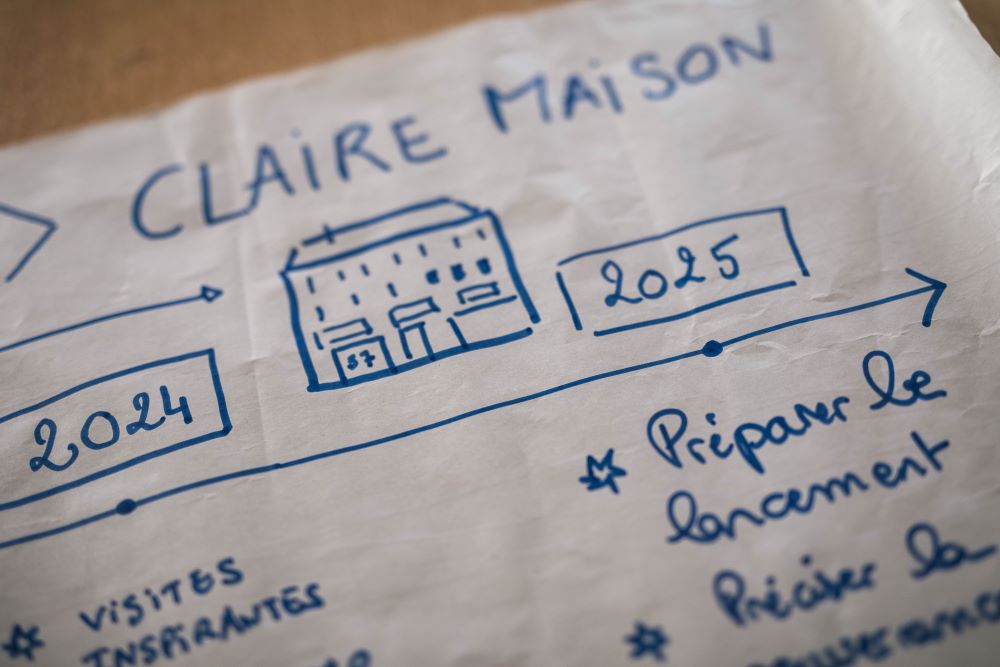 CLAIRE MAISON
2025
37
2024
Préparer le
lancement
VISITES
INSPIRANTES
Préciser la